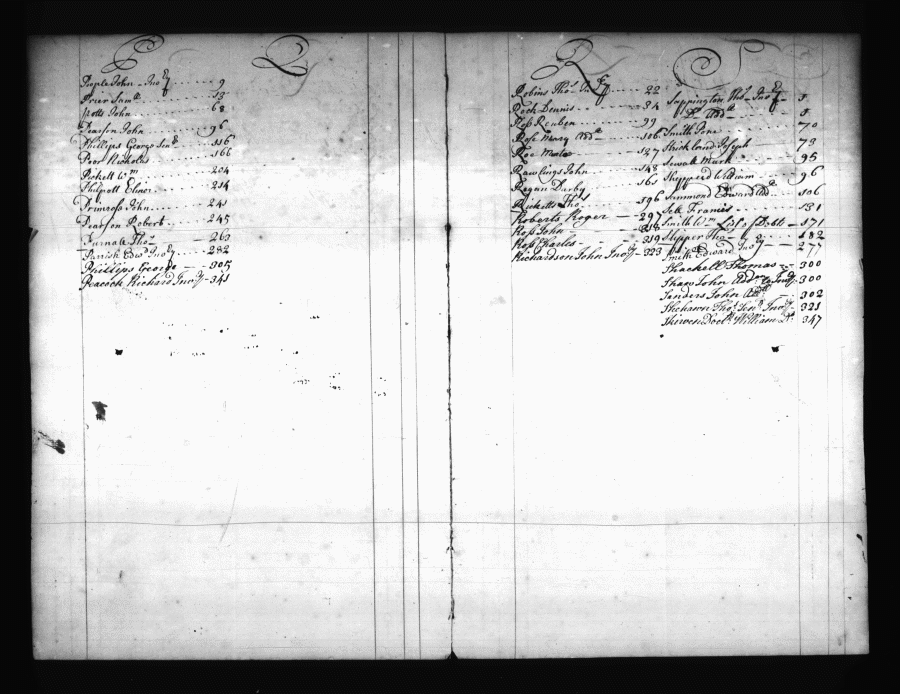 P
People John Invy 9
Prier Saml 13
Potts John 68
Pearson John 96
Phillips George Senr 116
Poor Nicholas 166
Pickett Wm 204
Philpott Elinor 214
Primrose John 241
Pearson Robert 245
Purnale Thos 263
Parrish Edwd Invy 282
Phillips George 305
Peacock Richard Invy 341
Q
R
Robins Thos 22
Rock Dennis 34
Ross Reuben 99
Rose Mary Addl 106
Roe 147
Rawlings John 148
Regan Darby 165
Ricketts Thos 196
Roberts Roger 291
Ross John 318
Ross Charles 319
Richardson John Invy 323
S
Sappington Thos Invy 5
Do Addl 8
Smith Jane 70
Strickland Joseph 73
Sewall Mark 95
Sheppard William 96
Simmond Edward Addl 106
Sele Francis 131
Smith Wm List of Debts 171
Slipper Thos 182
Smith Edward Invy 277
Shackell Thomas 300
Shaw John Addl to Invy 300
Sanders John Addl 302
Thos Senr Invy 321
Skirven William 347